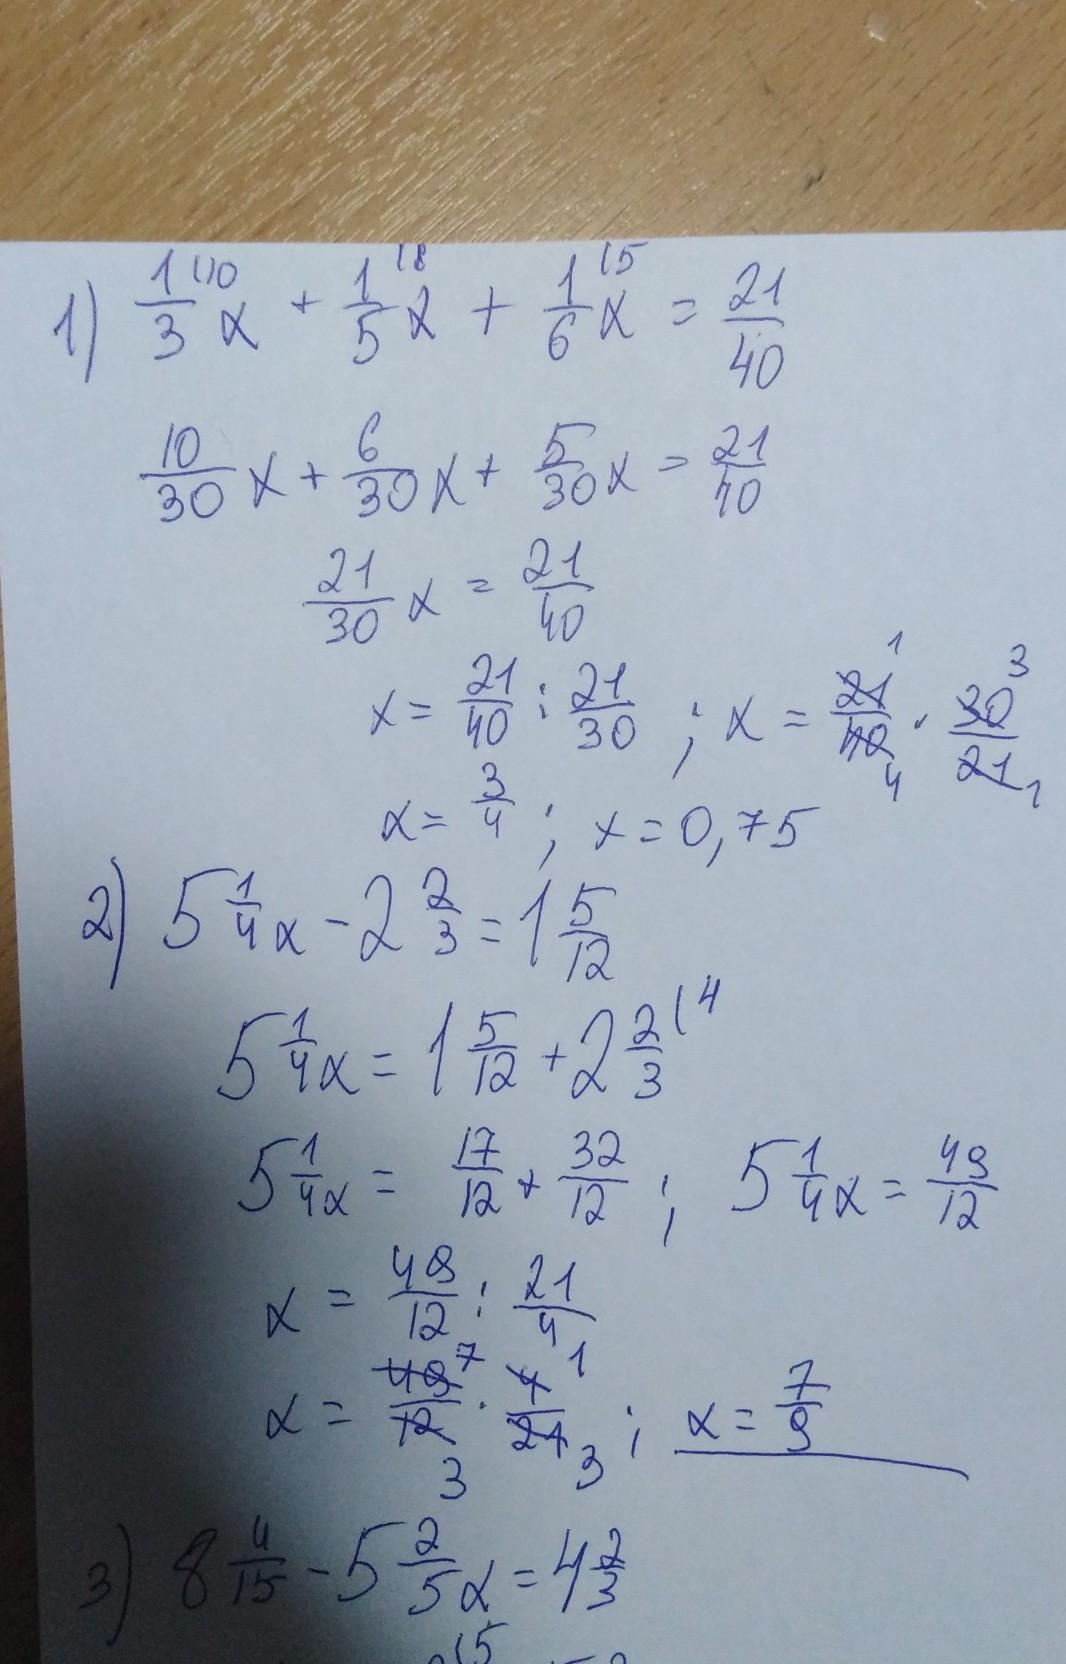 1) 1/3 (10 x + 1/5 (6 x + 1/6 (5 x = 21/40
10/30 x + 6/30 x + 5/30 x = 21/40
21/30 x = 21/40
x = 21/40 : 21/30 ; x = 21/40 1 4 · 30/21 3 1
x = 3/4 ; x = 0,75
2) 5 1/4 x - 2 2/3 = 1 5/12
5 1/4 x = 1 5/12 + 2 2/3 (4
5 1/4 x = 17/12 + 32/12 ; 5 1/4 x = 49/12
x = 49/12 : 21/4
x = 49/12 7 3 · 4/21 1 3 ; x = 7/9
3) 8 4/15 - 5 2/5 x = 4 2/3
(5